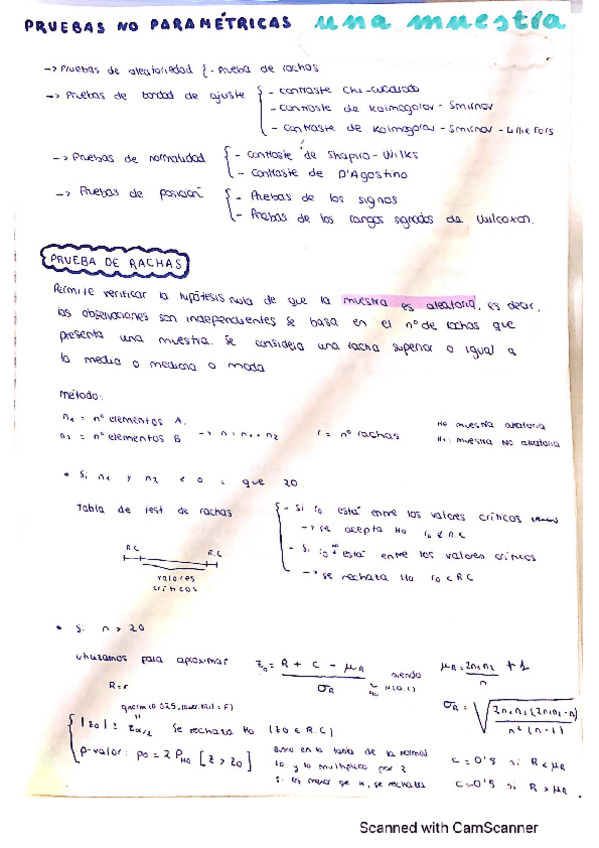 PRUEBAS NO PARAMÉTRICAS una muestra
-> Pruebas de aleatoriedad { - Prueba de rachas
-> Pruebas de bondad de ajuste { - contraste chi-cuadrado
- contraste de Kolmogorov - Smirnov
- contraste de Kolmogorov - Smirnov - Lilliefors
-> Pruebas de normalidad { - contraste de Shapiro - Wilks
- contraste de D'Agostino
-> Pruebas de posición { - Pruebas de los signos
- Pruebas de los rangos signados de Wilcoxon.
PRUEBA DE RACHAS
Permite verificar la hipótesis nula de que la muestra es aleatoria, es decir,
las observaciones son independientes se basa en el nº de rachas que
presenta una muestra. Se considera una racha superior o igual a
la media o mediana o moda
Método:
n₁ = nº elementos A.
n₂ = nº elementos B -> n = n₁ + n₂ r = nº rachas
H₀ muestra aleatoria
H₁: muestra NO aleatoria
• Si n₁ y n₂ < o = que 20
Tabla de test de rachas
{ - Si r₀ está entre los valores críticos
-> se acepta H₀ r₀ ∉ R.C
- Si r₀ no está entre los valores críticos
-> se rechaza H₀ r₀ ∈ R.C
R.C R.C
valores
críticos
• Si n > 20
utilizamos para aproximar z₀ = (R + C - μR) / σR siendo μR = 2n₁n₂ / n + 1
N(0,1)
R=r
σR = √(2n₁n₂(2n₁n₂-n) / n²(n-1))
qnorm(0.025, lower.tail = F)
{ |z₀| ≥ z α/2 Se rechaza H₀ (z₀ ∈ R.C)
p-valor: p₀ = 2 P H₀ [Z > z₀]
en la tabla de la normal
lo y lo multiplico por 2
si es menor que α, se rechaza
C = 0'5 si R < μR
C = 0'5 si R > μR
Scanned with CamScanner